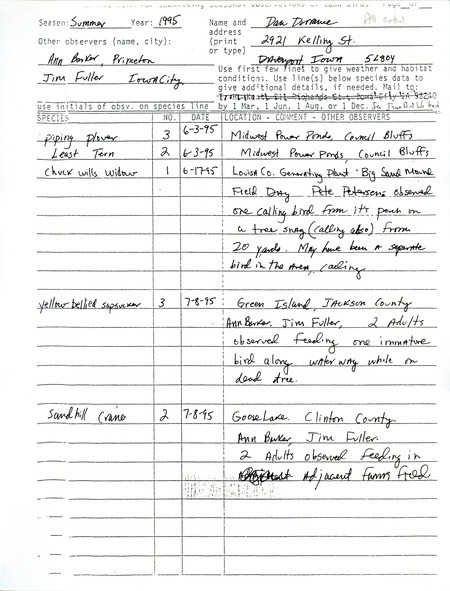 form for submitting seasonal observations of Iowa birds Page of
Season: Summer Year: 1995 Name and Dan Dorrance
address
Other observers (name, city): (print 2921 Kelling St.
or type) Davenport Iowa 52804
Ann Barker, Princeton
Jim Fuller Iowa City
Use first few lines to give weather and habitat
conditions. Use line(s) below species data to
give additional details, if needed. Mail to:
use initials of obsv. on species line by 1 Mar, 1 Jun, 1 Aug, or 1 Dec.
SPECIES NO. DATE LOCATION - COMMENT - OTHER OBSERVERS
piping plover 3 6-3-95 Midwest Power Ponds, Council Bluffs
Least Tern 2 6-3-95 Midwest Power Ponds, Council Bluffs
chuck wills widow 1 6-17-95 Louisa Co. Generating Plant "Big Sand Mound
Field Day Pete Petersen observed
one calling bird from it's perch on
a tree snag (calling also) from
20 yards. May have been a separate
bird in the area, calling
yellow bellied sapsucker 3 7-8-95 Green Island, Jackson County
Ann Barker. Jim Fuller, 2 Adults
observed feeding one immature
bird along water way while on
dead tree.
Sandhill Crane 2 7-8-95 Goose Lake. Clinton County.
Ann Barker, Jim Fuller.
2 Adults observed feeding in
Adjacent farm field